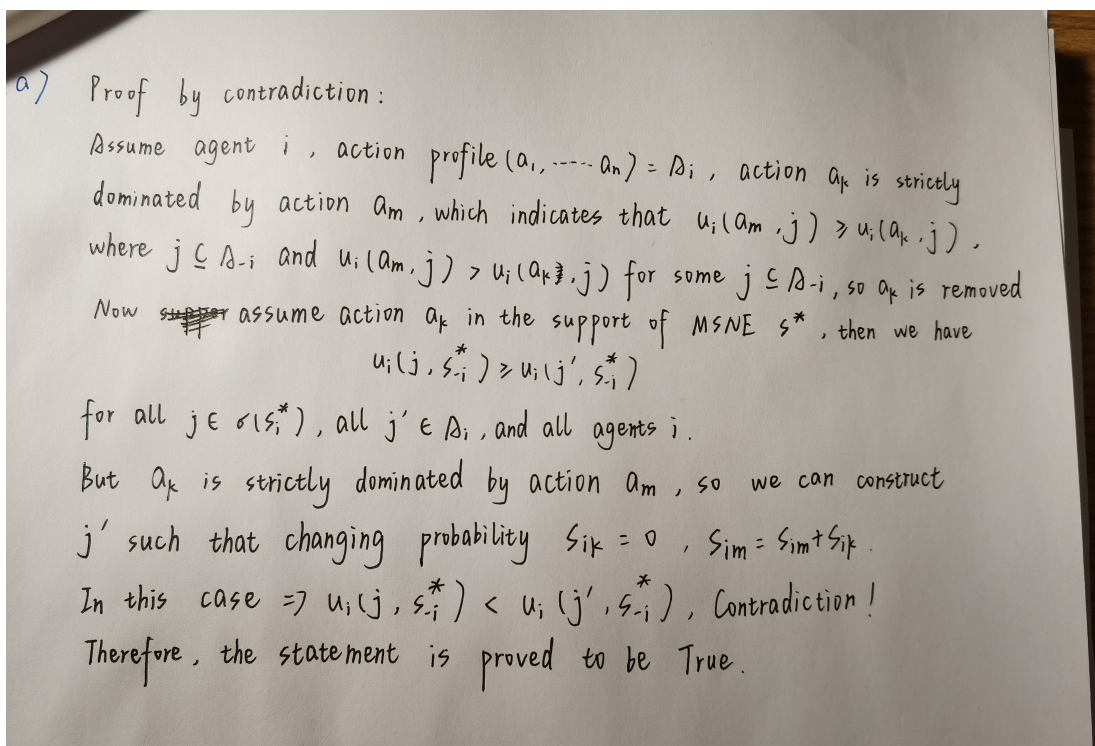 a) Proof by contradiction:
Assume agent i, action profile (a₁, ----- aₙ) = Aᵢ, action aₖ is strictly
dominated by action aₘ, which indicates that uᵢ(aₘ, j) ⩾ uᵢ(aₖ, j),
where j ⊆ A₋ᵢ and uᵢ(aₘ, j) > uᵢ(aₖ, j) for some j ⊆ A₋ᵢ, so aₖ is removed
Now assume action aₖ in the support of MSNE s*, then we have
uᵢ(j, s₋ᵢ*) ⩾ uᵢ(j', s₋ᵢ*)
for all j ∈ σ(sᵢ*), all j' ∈ Aᵢ, and all agents i.
But aₖ is strictly dominated by action aₘ, so we can construct
j' such that changing probability Sᵢₖ = 0, Sᵢₘ = Sᵢₘ + Sᵢₖ.
In this case => uᵢ(j, s₋ᵢ*) < uᵢ(j', s₋ᵢ*), Contradiction!
Therefore, the statement is proved to be True.